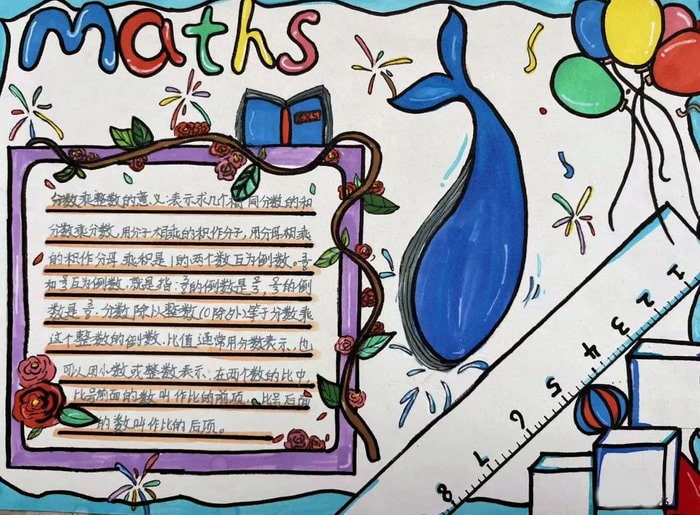 maths
分数乘整数的意义:表示求几个相同分数的和
分数乘分数,用分子相乘的积作分子,用分母相乘
的积作分母.乘积是1的两个数互为倒数。
和 互为倒数,就是指: 的倒数是 , 的倒
数是 .分数除以整数(0除外)等于分数乘
这个整数的倒数.比值通常用分数表示,也
可以用小数或整数表示.在两个数的比中,
比号前面的数叫作比的前项,比号后面
的数叫作比的后项。
1
2
3
4
5
6
7
8